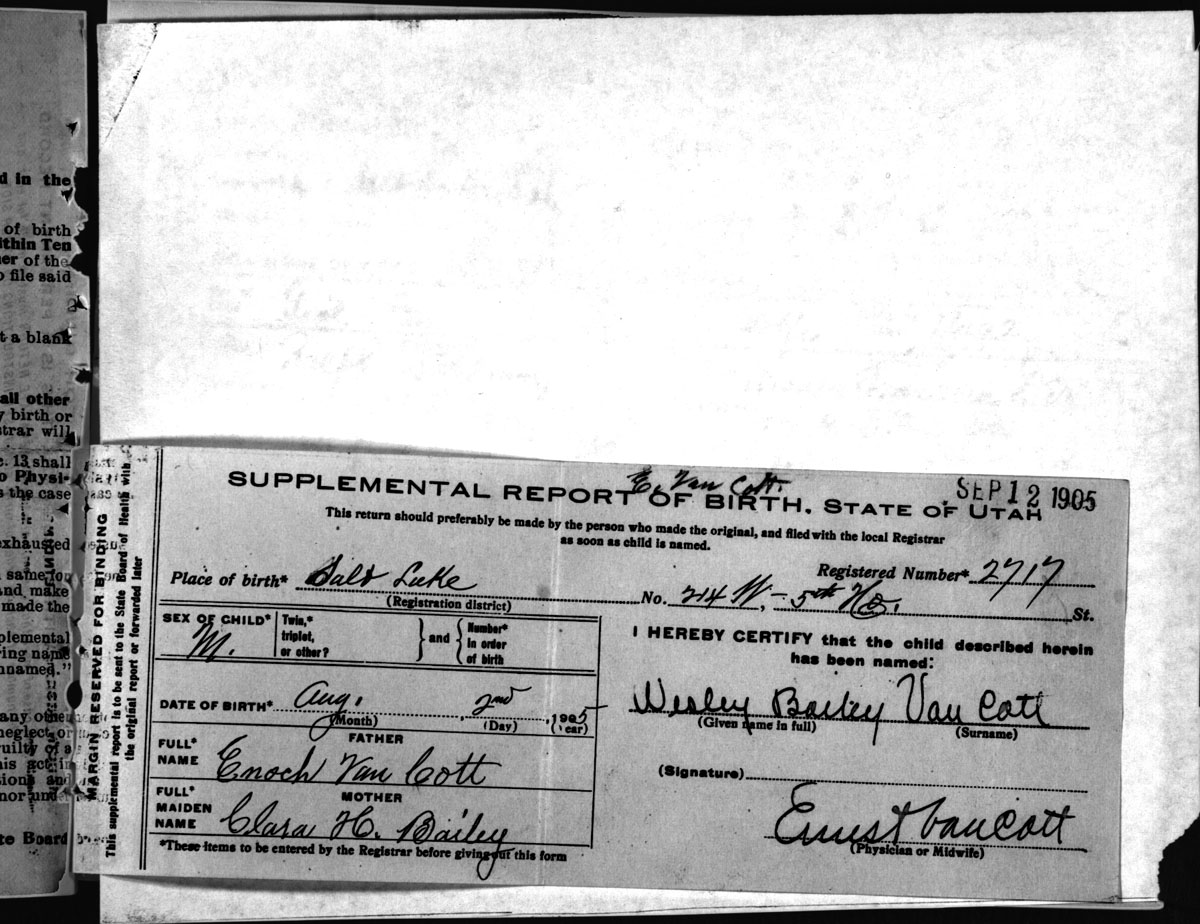 d in the
of birth
ithin Ten
er of the
o file said
t a blank
all other
y birth or
strar will
c. 13 shall
o Physi-
s the case
exhausted
same for
and make
made the
plemental
ring name
nnamed."
any other
neglect or
uilty of a
his act in
tions and
nor under
te Board
MARGIN RESERVED FOR BINDING
This supplemental report is to be sent to the State Board of Health with
the original report or forwarded later
E. Van Cott.
SEP 12 1905
SUPPLEMENTAL REPORT OF BIRTH, STATE OF UTAH
This return should preferably be made by the person who made the original, and filed with the local Registrar
as soon as child is named.
Registered Number* 2717
Place of birth* Salt Lake No. 214 W.- 5th No. St.
(Registration district)
SEX OF CHILD* M. Twin,* triplet, or other? } and { Number* in order of birth
DATE OF BIRTH* Aug. 2nd, 1905
(Month) (Day) (Year)
FATHER
FULL* NAME Enoch Van Cott
MOTHER
FULL* MAIDEN NAME Clara H. Bailey
*These items to be entered by the Registrar before giving out this form
I HEREBY CERTIFY that the child described herein
has been named:
Wesley Bailey Van Cott
(Given name in full) (Surname)
(Signature)
Ernest Van Cott
(Physician or Midwife)